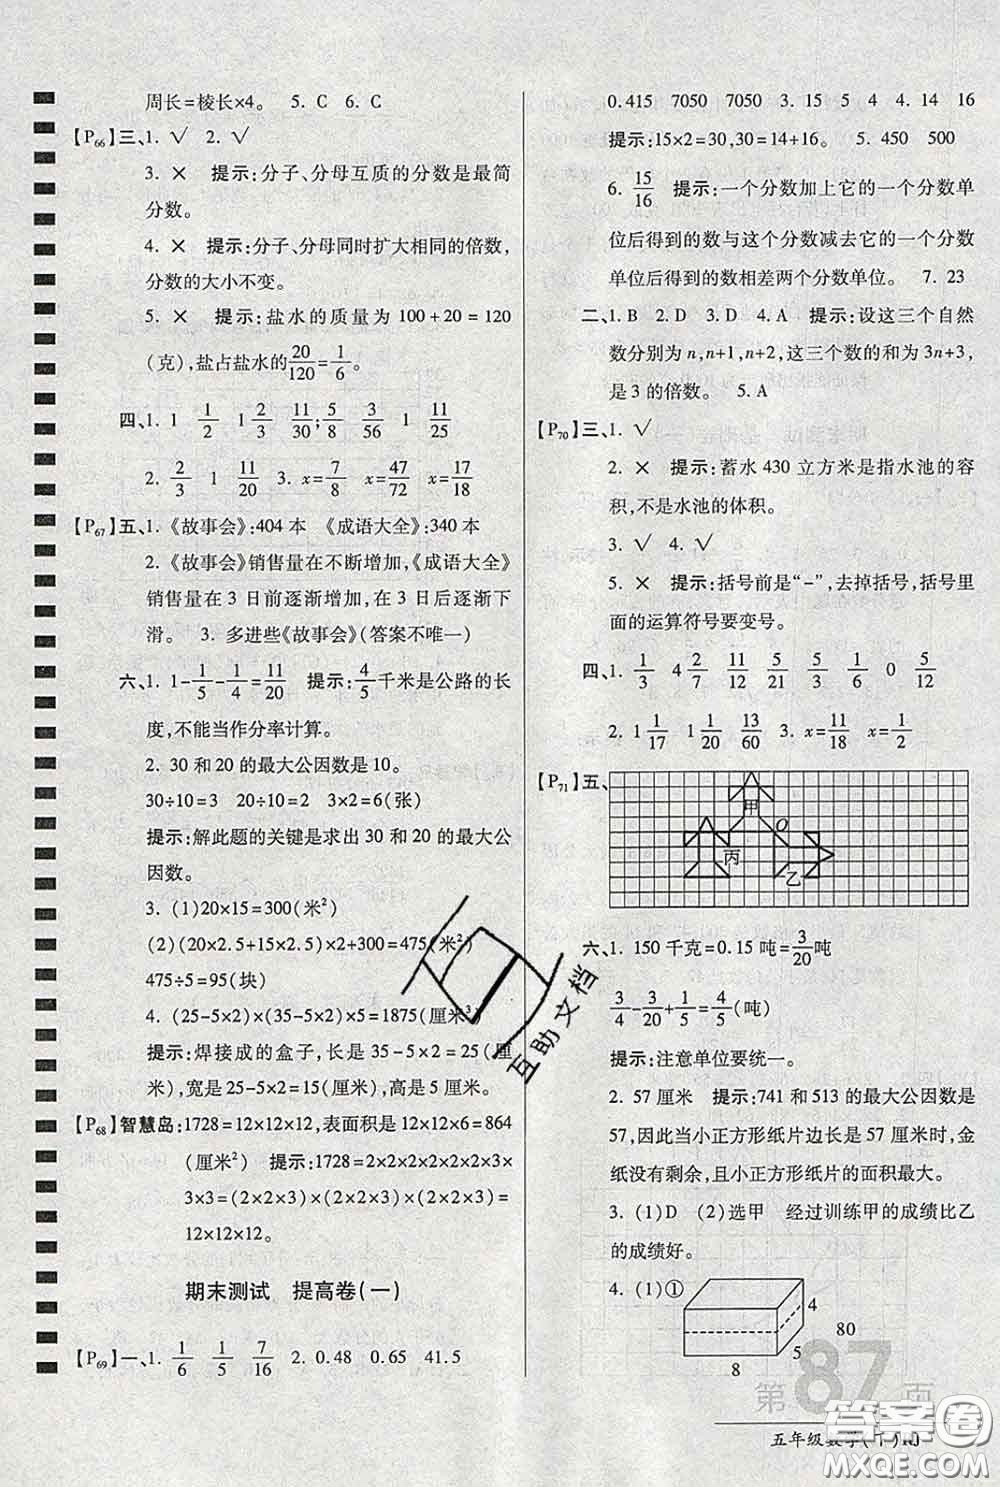 周长=棱长×4。 5. C 6. C
【P66】三、1. √ 2. √
3. × 提示:分子、分母互质的分数是最简
分数。
4. × 提示:分子、分母同时扩大相同的倍数,
分数的大小不变。
5. × 提示:盐水的质量为 100+20=120
(克),盐占盐水的20/120=1/6。
四、1. 1 1/2 1 2/3 11/30; 5/8 3/56 1 11/25
2. 2/3 1 11/20 3. x=7/8 x=47/72 x=17/18
【P67】五、1.《故事会》:404 本 《成语大全》:340 本
2.《故事会》销售量在不断增加,《成语大全》
销售量在 3 日前逐渐增加,在 3 日后逐渐下
滑。 3. 多进些《故事会》(答案不唯一)
六、1. 1-1/5-1/4=11/20 提示:4/5千米是公路的长
度,不能当作分率计算。
2. 30 和 20 的最大公因数是 10。
30÷10=3 20÷10=2 3×2=6(张)
提示:解此题的关键是求出 30 和 20 的最大公
因数。
3. (1)20×15=300(米²)
(2)(20×2.5+15×2.5)×2+300=475(米²)
475÷5=95(块)
4. (25-5×2)×(35-5×2)×5=1875(厘米³)
提示:焊接成的盒子,长是 35-5×2=25(厘
米),宽是 25-5×2=15(厘米),高是 5 厘米。
【P68】智慧岛:1728=12×12×12,表面积是 12×12×6=864
(厘米²) 提示:1728=2×2×2×2×2×2×
3×3×3=(2×2×3)×(2×2×3)×(2×2×3)=
12×12×12。
期末测试 提高卷(一)
【P69】一、1. 1/6 1/5 7/16 2. 0.48 0.65 41.5
0.415 7050 7050 3. 15 5 4 4. 14 16
提示:15×2=30,30=14+16。 5. 450 500
6. 15/16 提示:一个分数加上它的一个分数单
位后得到的数与这个分数减去它的一个分数
单位后得到的数相差两个分数单位。 7. 23
二、1. B 2. D 3. D 4. A 提示:设这三个自然
数分别为 n,n+1,n+2,这三个数的和为 3n+3,
是 3 的倍数。 5. A
【P70】三、1. √
2. × 提示:蓄水 430 立方米是指水池的容
积,不是水池的体积。
3. √ 4. √
5. × 提示:括号前是“-”,去掉括号,括号里
面的运算符号要变号。
四、1. 1/3 4 2/7 7/12 5/12 5/6 1/6 0 5/12
2. 1 1/17 1 1/20 13/60 3. x=11/18 x=1/2
【P71】五、
甲
O
丙
乙
六、1. 150 千克=0.15 吨=3/20吨
3/4-3/20+1/5=4/5(吨)
提示:注意单位要统一。
2. 57 厘米 提示:741 和 513 的最大公因数是
57,因此当小正方形纸片边长是 57 厘米时,金
纸没有剩余,且小正方形纸片的面积最大。
3. (1)D (2)选甲 经过训练甲的成绩比乙
的成绩好。
4. (1)①
4
5
8
80
第87页
五年级数学(下)RJ
互助文档
答案圈
MXQE.COM